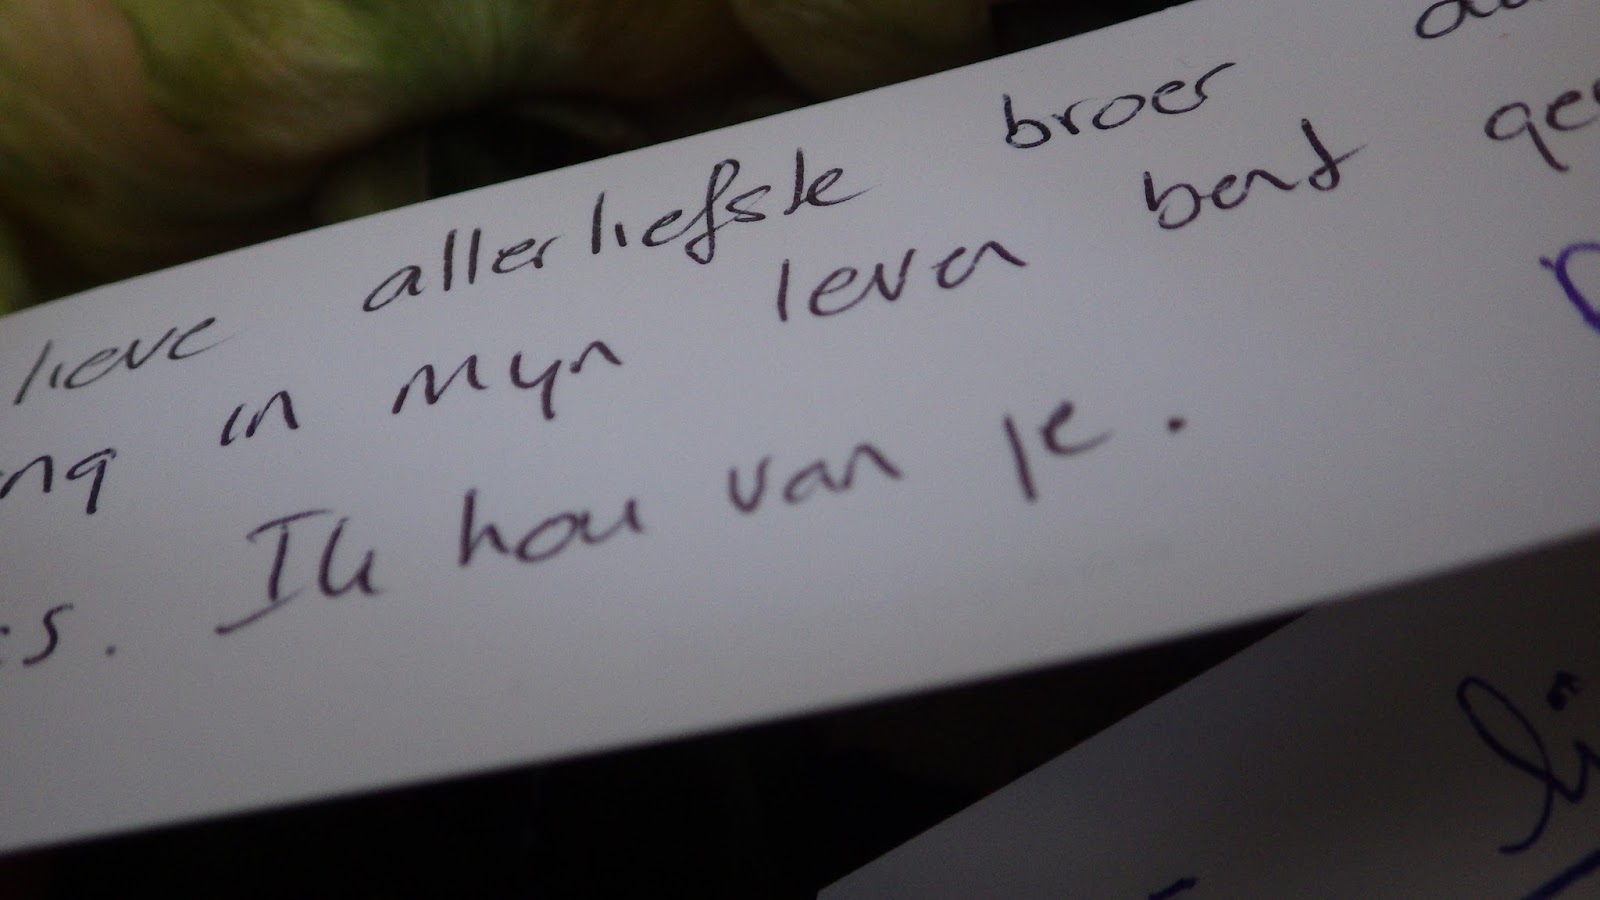 lieve allerliefste broer
in mijn leven bent
Ik hou van je.